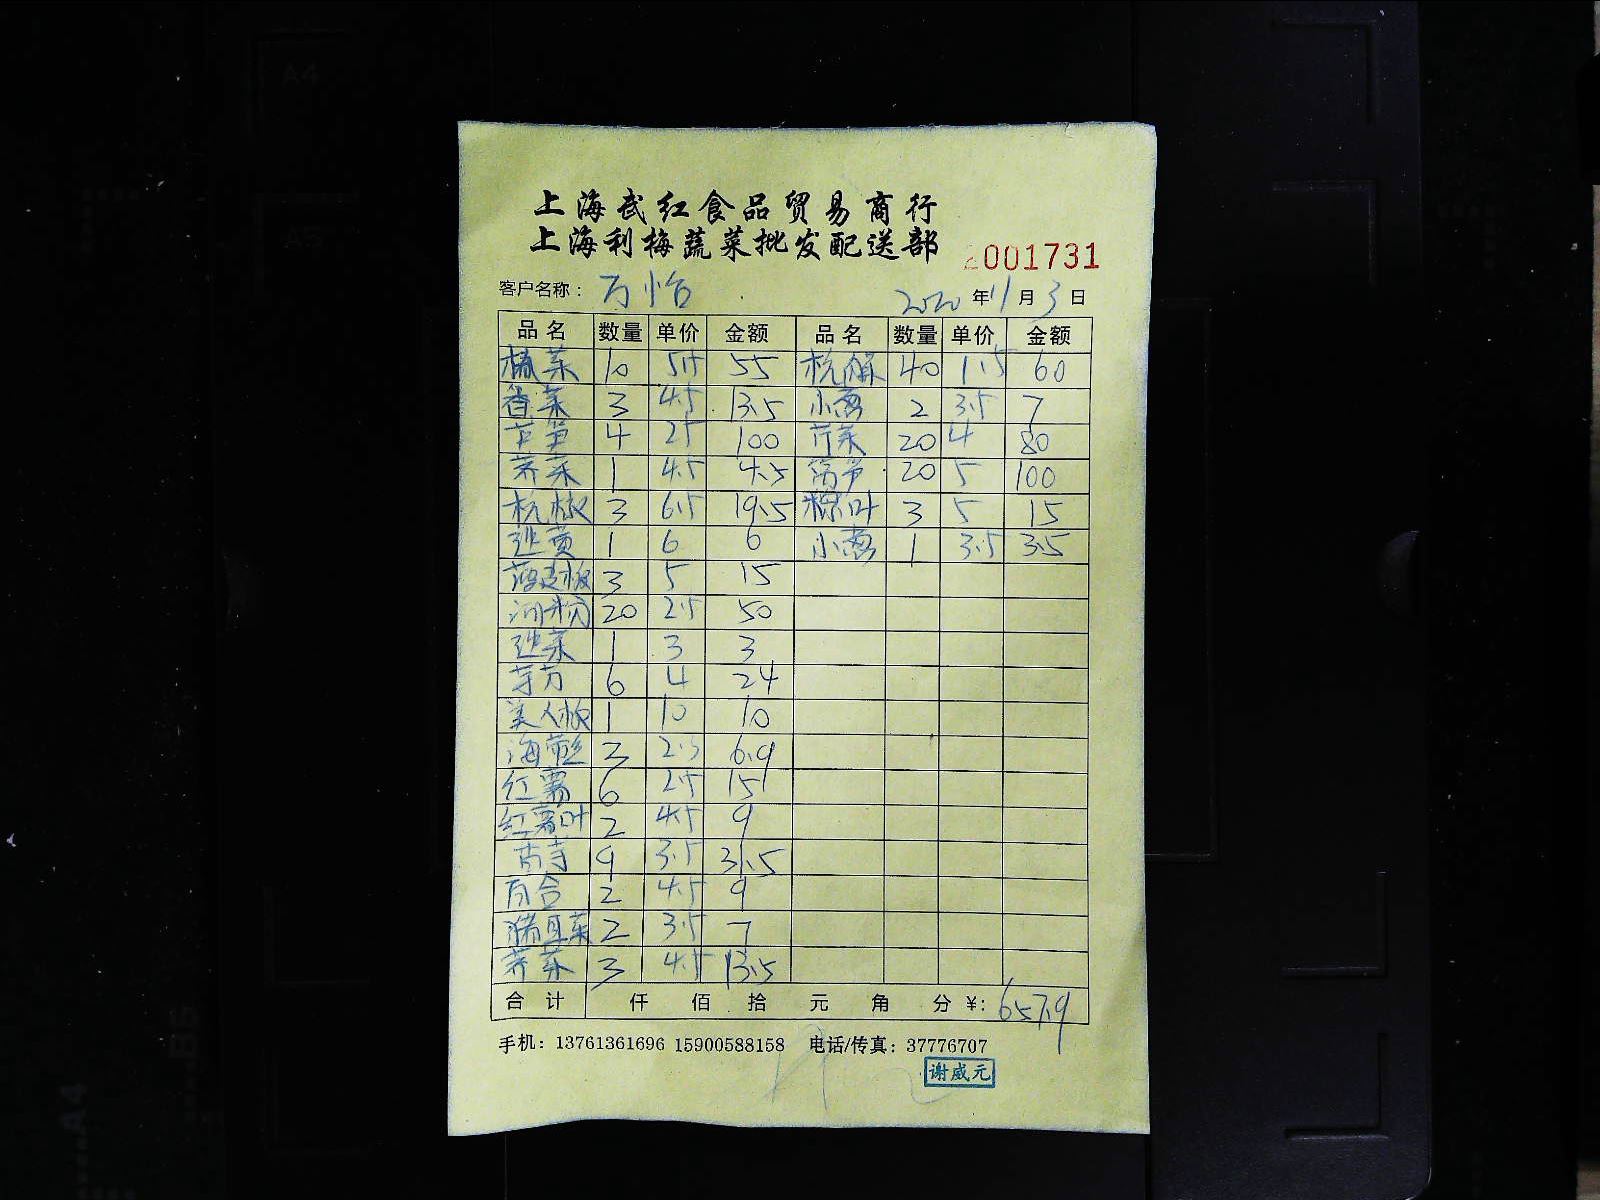 上海武红食品贸易商行
上海利梅蔬菜批发配送部 2001731
客户名称： 万怡 2020年11月3日
品名 数量 单价 金额 品名 数量 单价 金额
10 5.5 55 40 1.5 60
香菜 3 4.5 13.5 小葱 2 3.5 7
芦笋 4 25 100 芹菜 20 4 80
荠菜 1 4.5 4.5 莴笋 20 5 100
杭椒 3 6.5 19.5 粽叶 3 5 15
韭黄 1 6 6 小葱 1 3.5 3.5
3 5 15
河粉 20 2.5 50
韭菜 1 3 3
芋艿 6 4 24
美人椒 1 10 10
海带丝 3 2.3 6.9
红薯 6 2.5 15
红薯叶 2 4.5 9
9 3.5 31.5
百合 2 4.5 9
猪耳菜 2 3.5 7
荠菜 3 4.5 13.5
合计 仟 佰 拾 元 角 分 ¥: 657.9
手机：13761361696 15900588158 电话/传真：37776707
谢威元
A4
A5
A4
B5